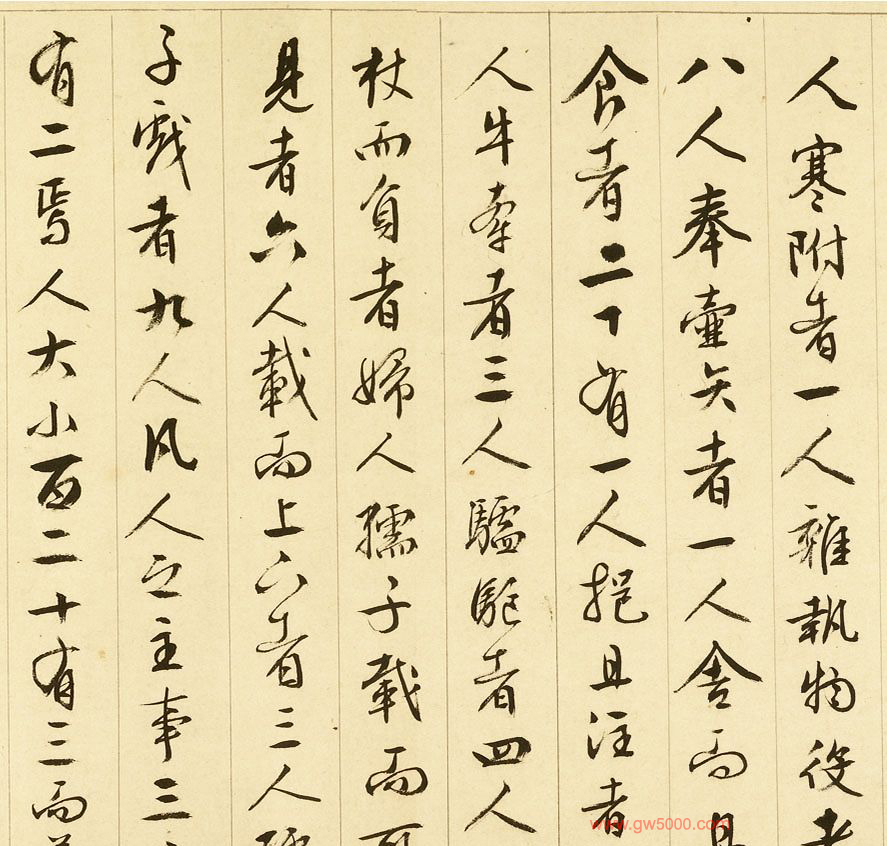 人寒附者一人雜執物役者
八人奉壺矢者一人舍而具
食者二丁有一人挹且注者
人牛牽者三人驢駈者四人
杖而負者婦人孺子載而可
見者六人載而上下者三人
子戲者九人凡人之主事三
有二焉人大小百二十有三而
www.gw5000.com